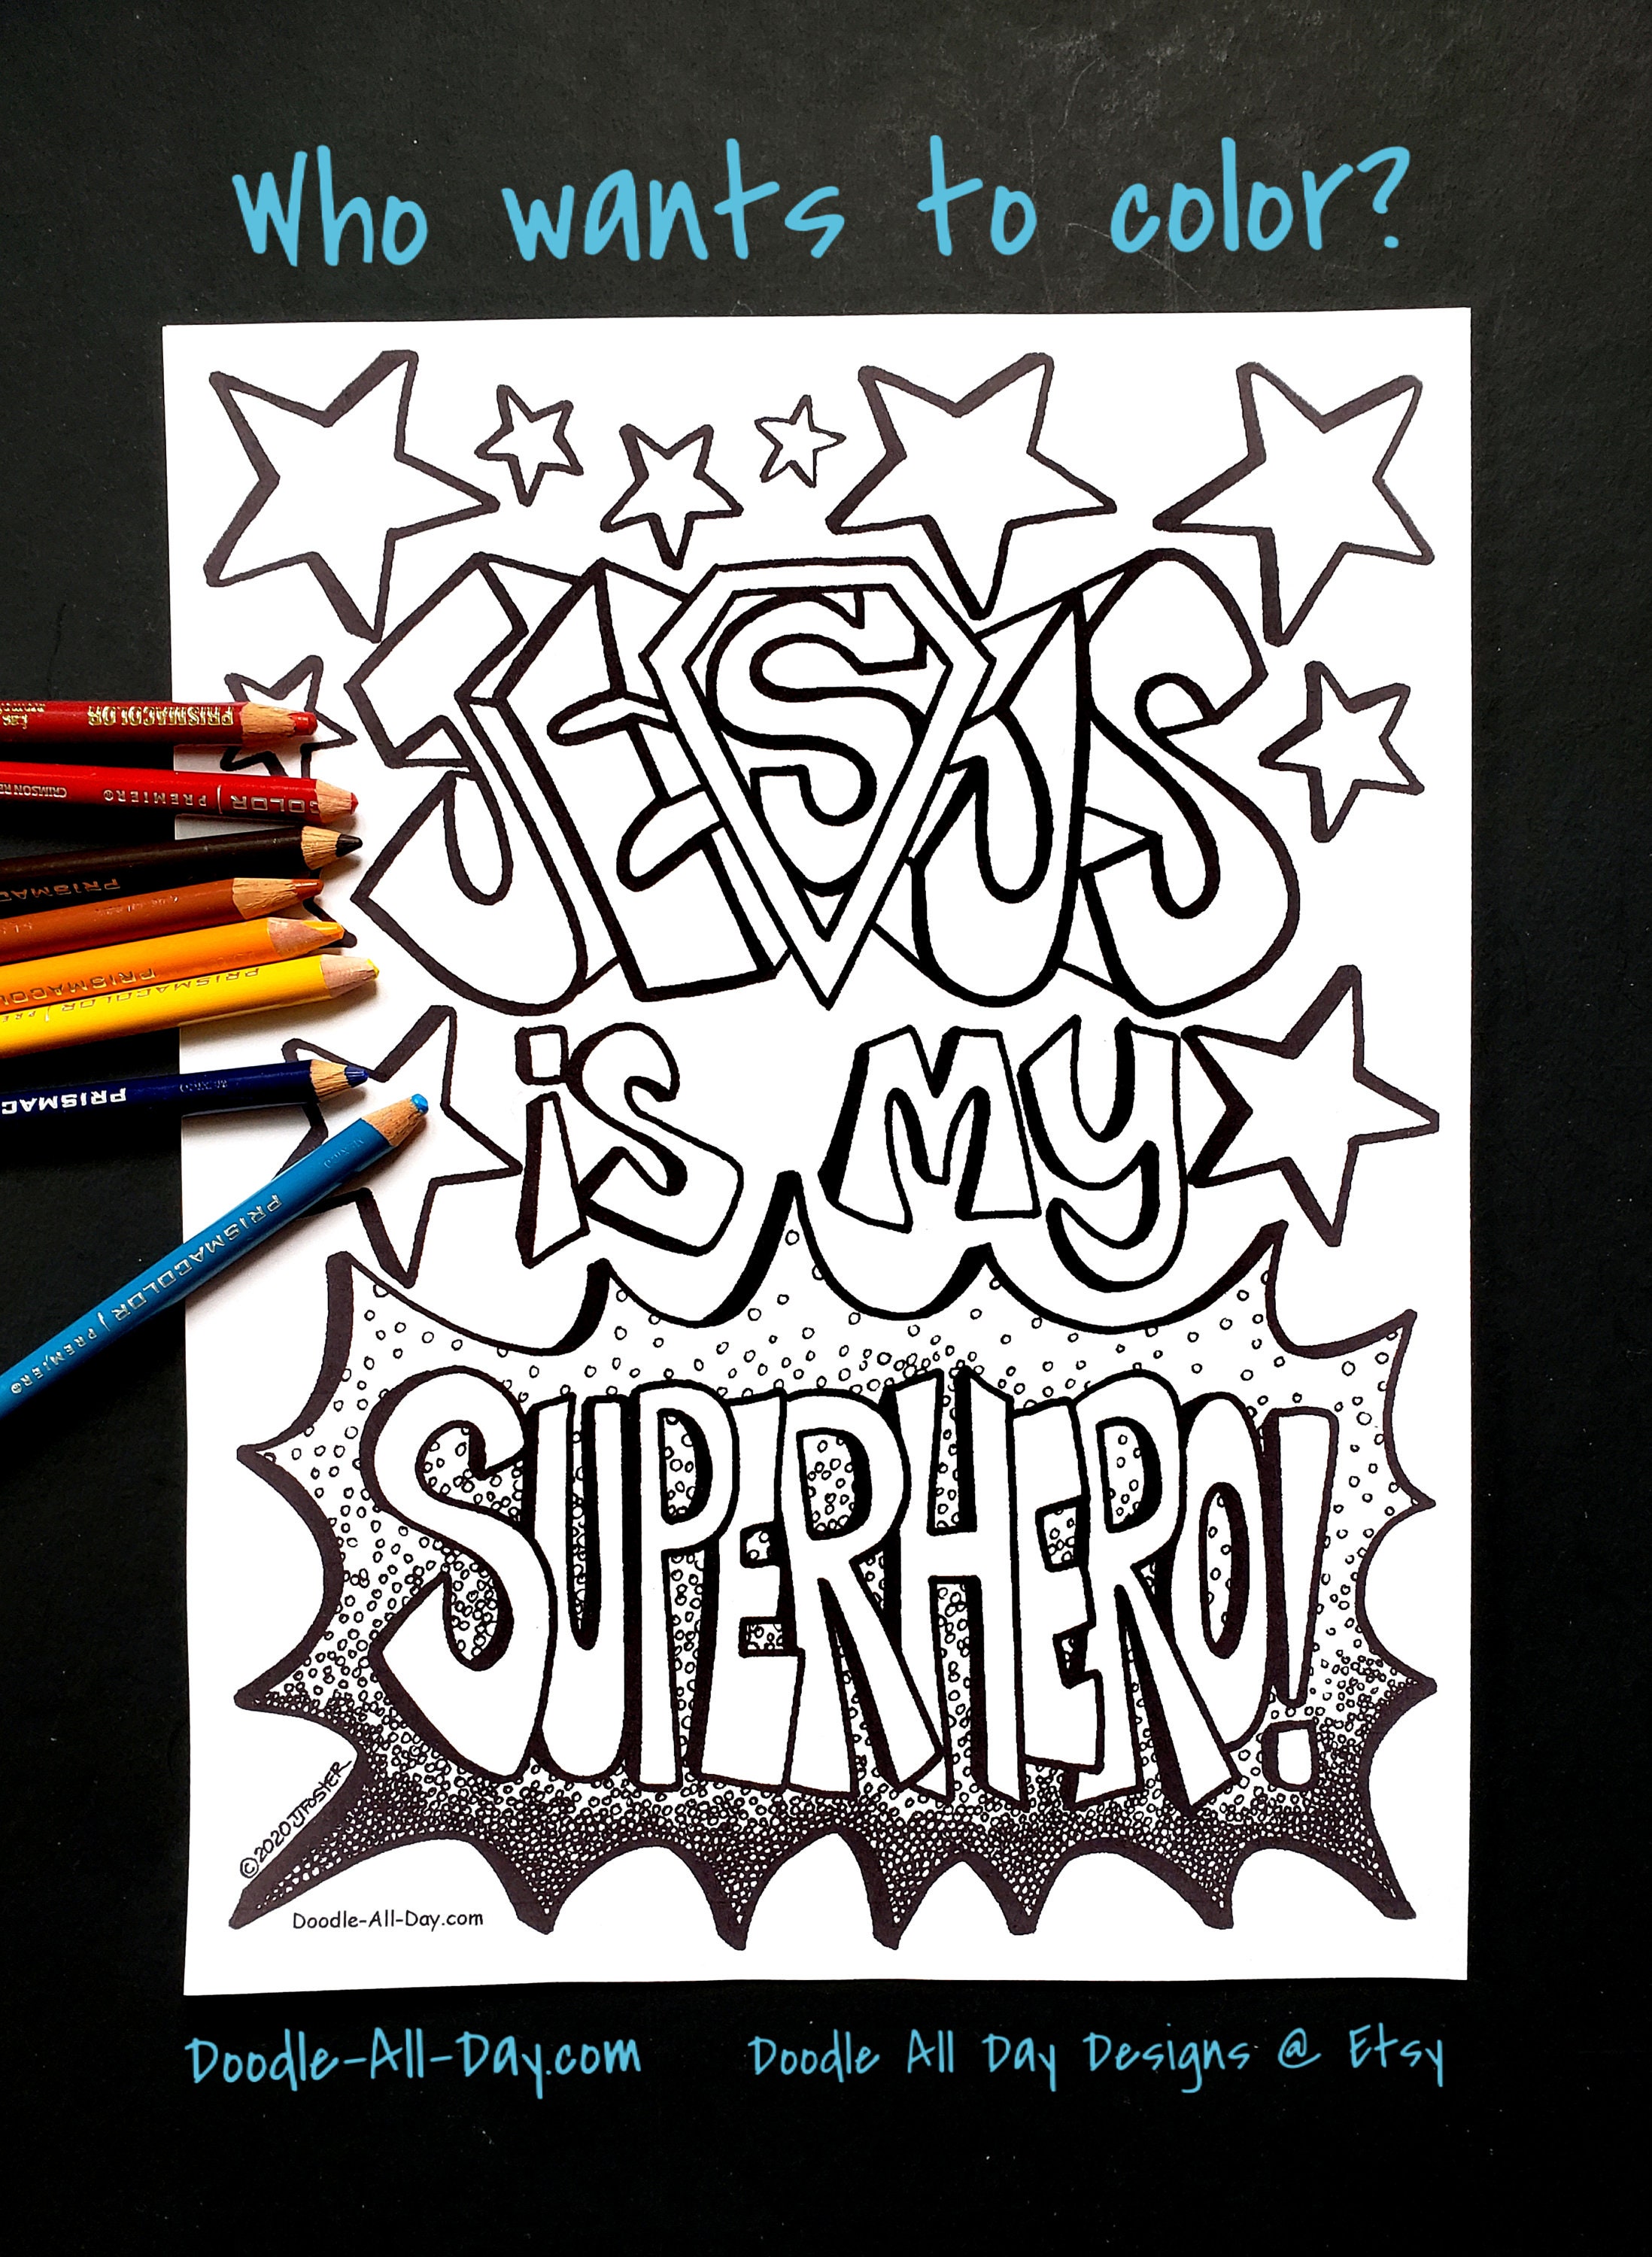 Who wants to color?
JESUS
is My
SUPERHERO!
PRISMACOLOR
CRIMSON RE PREMIER® COLOR
PRISMA
PRISMACO
PRISMACOLOR PRE
PRISMAC
PRISMACOLOR PREMIER®
©2020 JJFOSTER
Doodle-All-Day.com
Doodle-All-Day.com Doodle All Day Designs @ Etsy